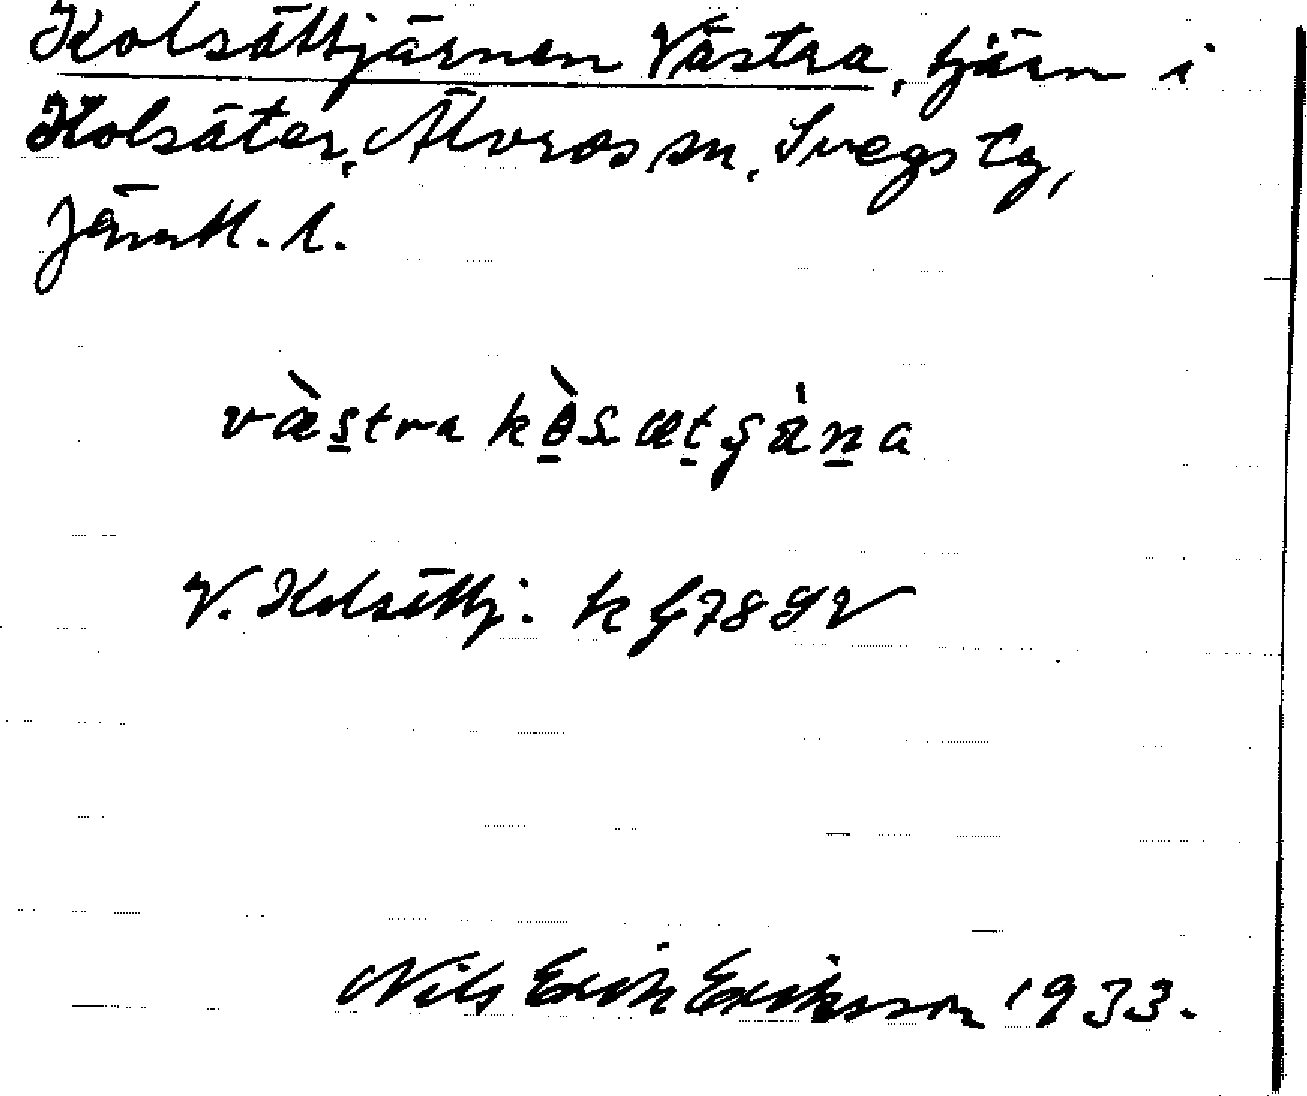 Kolsättjärnen Västra, tjärn i
Kolsäter, Älvros sn, Svegs tg,
Jämtl. l.
västra
V. Kolsättj. k f 78 SV
Nils Erik Eriksson 1933.